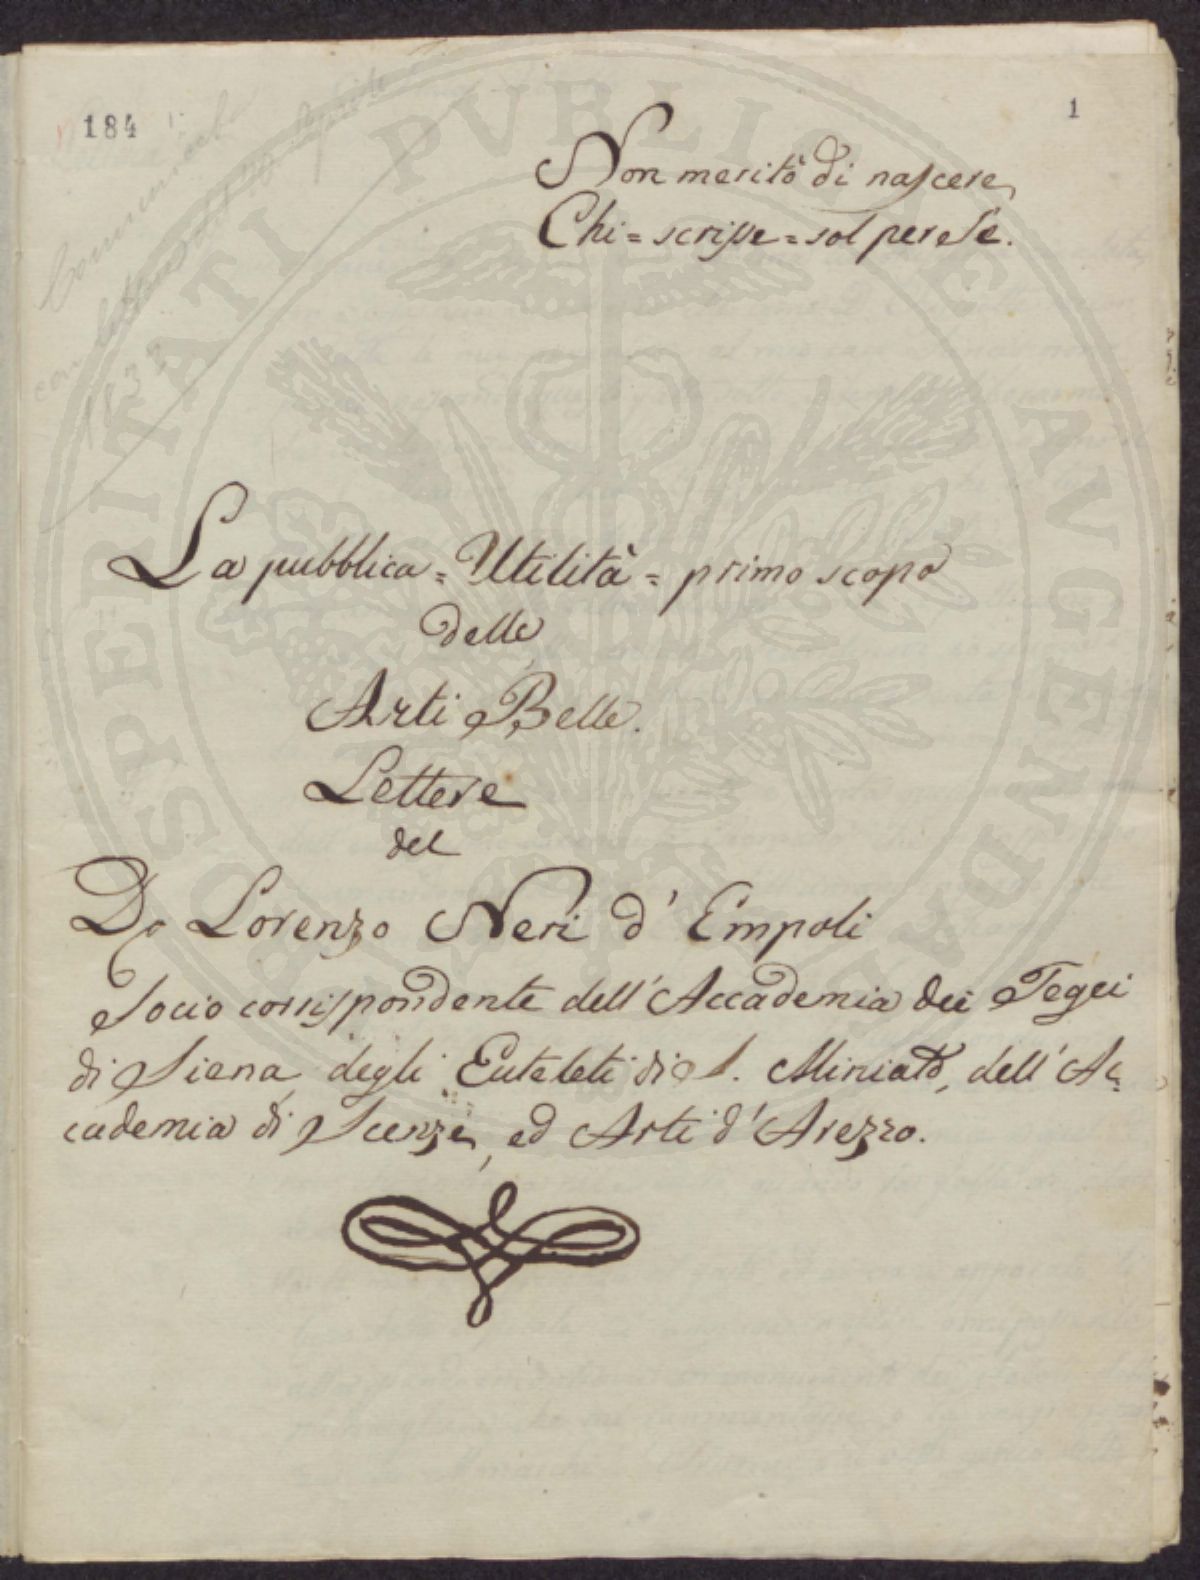 184
1
Non meritò di nascere
Chi = scrisse = sol per se.
Comunicat
con lettera
1833
La pubblica = Utilità = primo scopo
delle
Arti Belle.
Lettere
del
Dr Lorenzo Neri d'Empoli
Socio corrispondente dell'Accademia dei Tegei
di Siena, degli Euteleti di S. Miniato, dell'Ac=
cademia di Scenze, ed Arti d'Arezzo.
PROSPERITATI PVBLICAE AVGENDAE